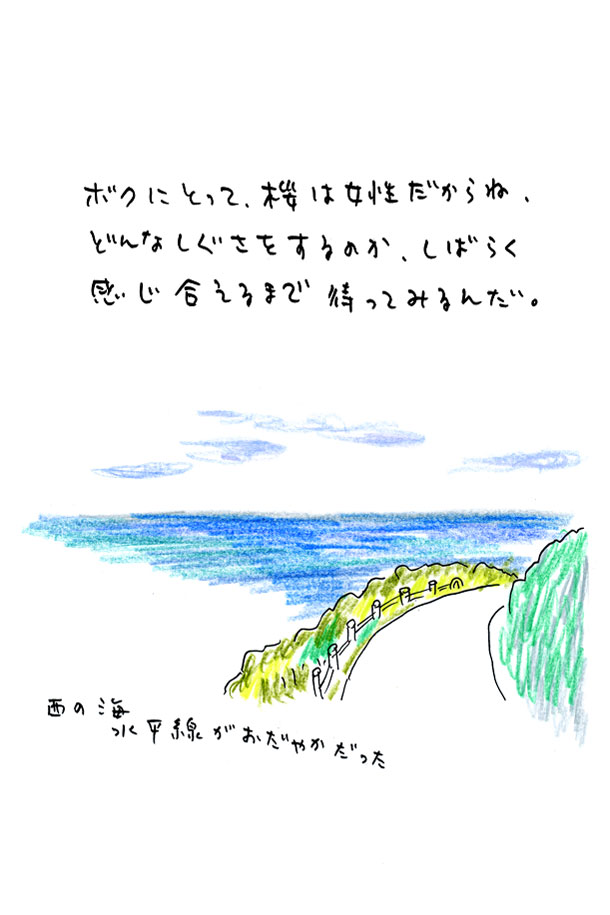 ボクにとって、桜は女性だからね、
どんなしぐさをするのか、しばらく
感じ合えるまで待ってみるんだ。
西の海
水平線がおだやかだった